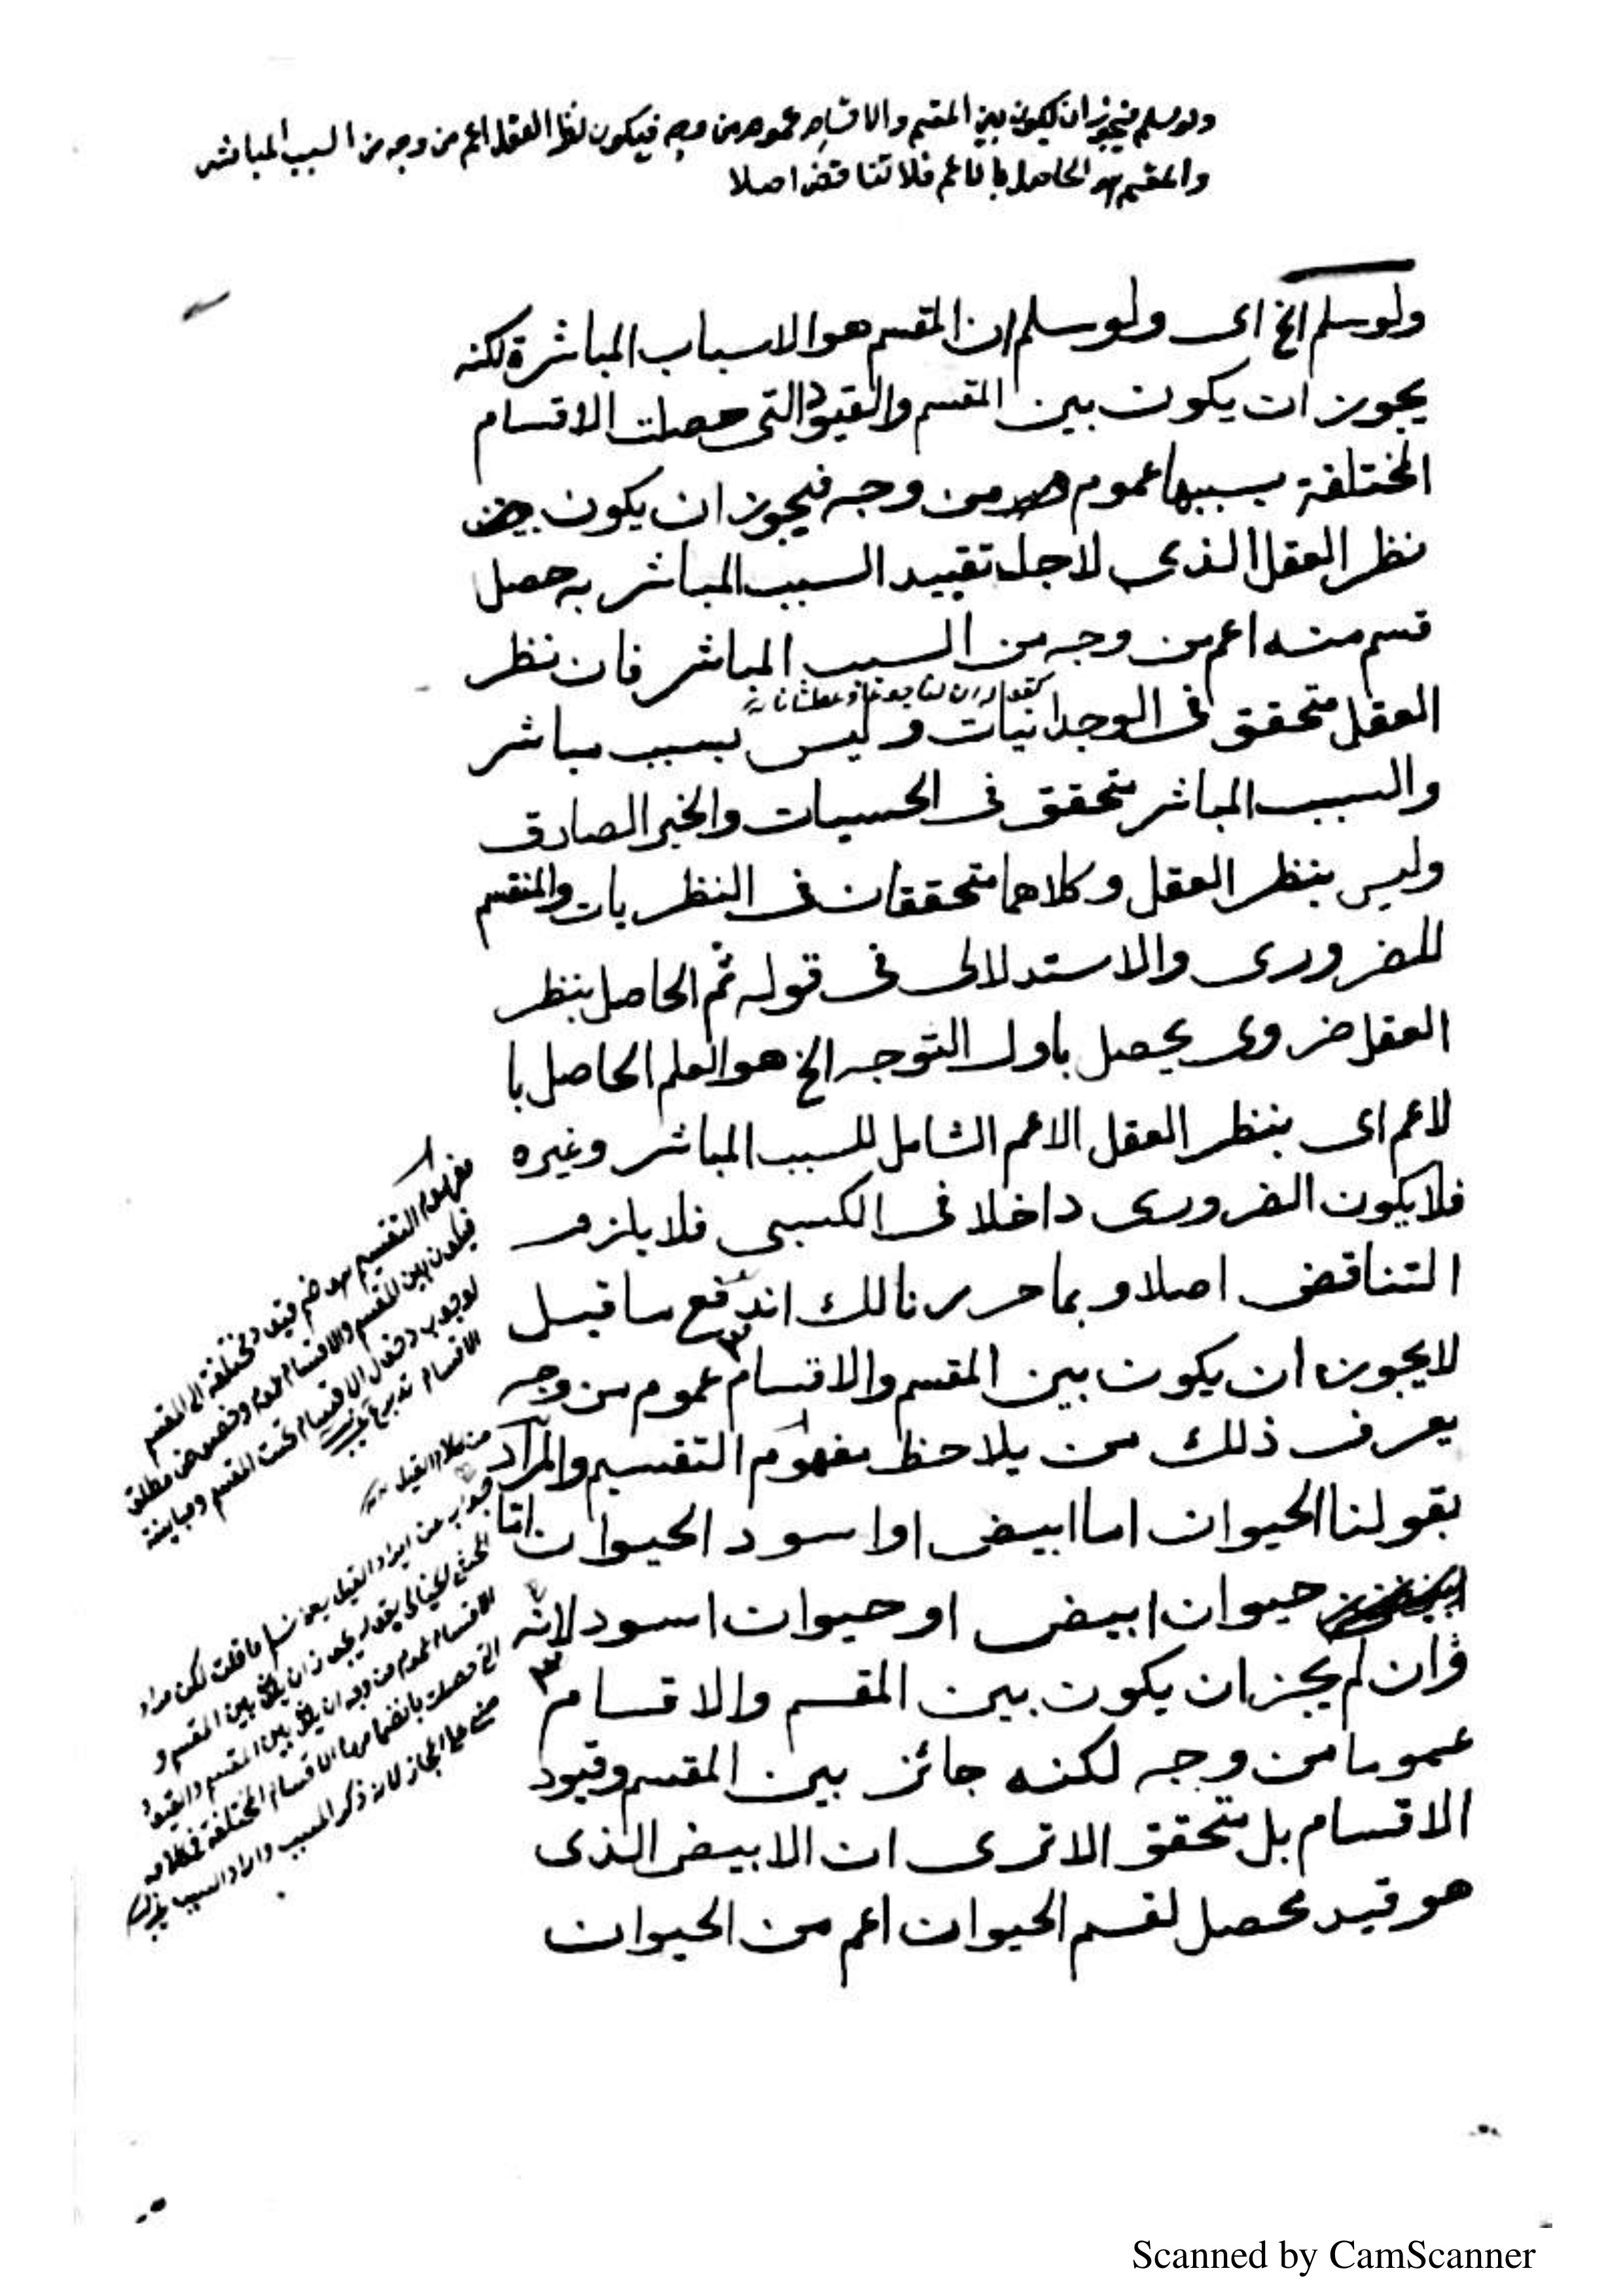 ولو سلم فيجوز ان يكون بين المقسم والاقسام عموم من وجه فيكون نظر العقل اعم من وجه من السبب المباشر
والمقسم هو الحاصل بالاعم فلا تناقض اصلا
ولو سلم الخ اى ولو سلم ان المقسم هو الاسباب المباشرة لكنه
يجوز ان يكون بين المقسم والقيود التى حصلت الاقسام
المختلفة بسببها عموم من وجه فيجوز ان يكون
نظر العقل الذى لاجل تقييد السبب المباشر به حصل
قسم منه اعم من وجه من السبب المباشر فان نظر
كقولنا ان لنا جوعا وعطشا
العقل متحقق فى الوجدانيات وليس بسبب مباشر
والسبب المباشر متحقق فى الحسيات والخبر الصادق
وليس بنظر العقل وكلاهما متحققان فى النظريات والمنقسم
للضرورى والاستدلالى فى قوله ثم الحاصل بنظر
العقل ضروى يحصل باول التوجه الخ هو العلم الحاصل با
لاعم اى بنظر العقل الاعم الشامل للسبب المباشر وغيره
فلا يكون الضرورى داخلا فى الكسبى فلا يلزم
التناقض اصلا و بما حررنا لك اندفع ما قيل
لا يجوز ان يكون بين المقسم والاقسام عموم من وجه
يعرف ذلك من يلاحظ مفهوم التقسيم والمراد
بقولنا الحيوان اما ابيض او اسود الحيوان اما
حيوان ابيض او حيوان اسود لانه
فان لم يجز ان يكون بين المقسم والاقسام
عموما من وجه لكنه جائز بين المقسم وقيود
الاقسام بل متحقق الا ترى ان الابيض الذى
هو قيد محصل لقسم الحيوان اعم من الحيوان
مفهوم التقسيم هو ضم قيود مختلفة الى المقسم
فيكون بين المقسم والاقسام عموم وخصوص مطلق
لوجوب دخول الاقسام تحت المقسم ومباينة
الاقسام تدبر
من كلام القيل
جواب عن ايراد القيل يعنى سلمنا ما قلت لكن مراد
المحشى الخيالى بقوله يجوز ان يكون بين المقسم و
الاقسام عموم من وجه ان يكون بين المقسم والقيود
التى حصلت بانضمامها الاقسام المختلفة فكلامه
مبنى على المجاز لانه ذكر المسبب واراد السبب
Scanned by CamScanner